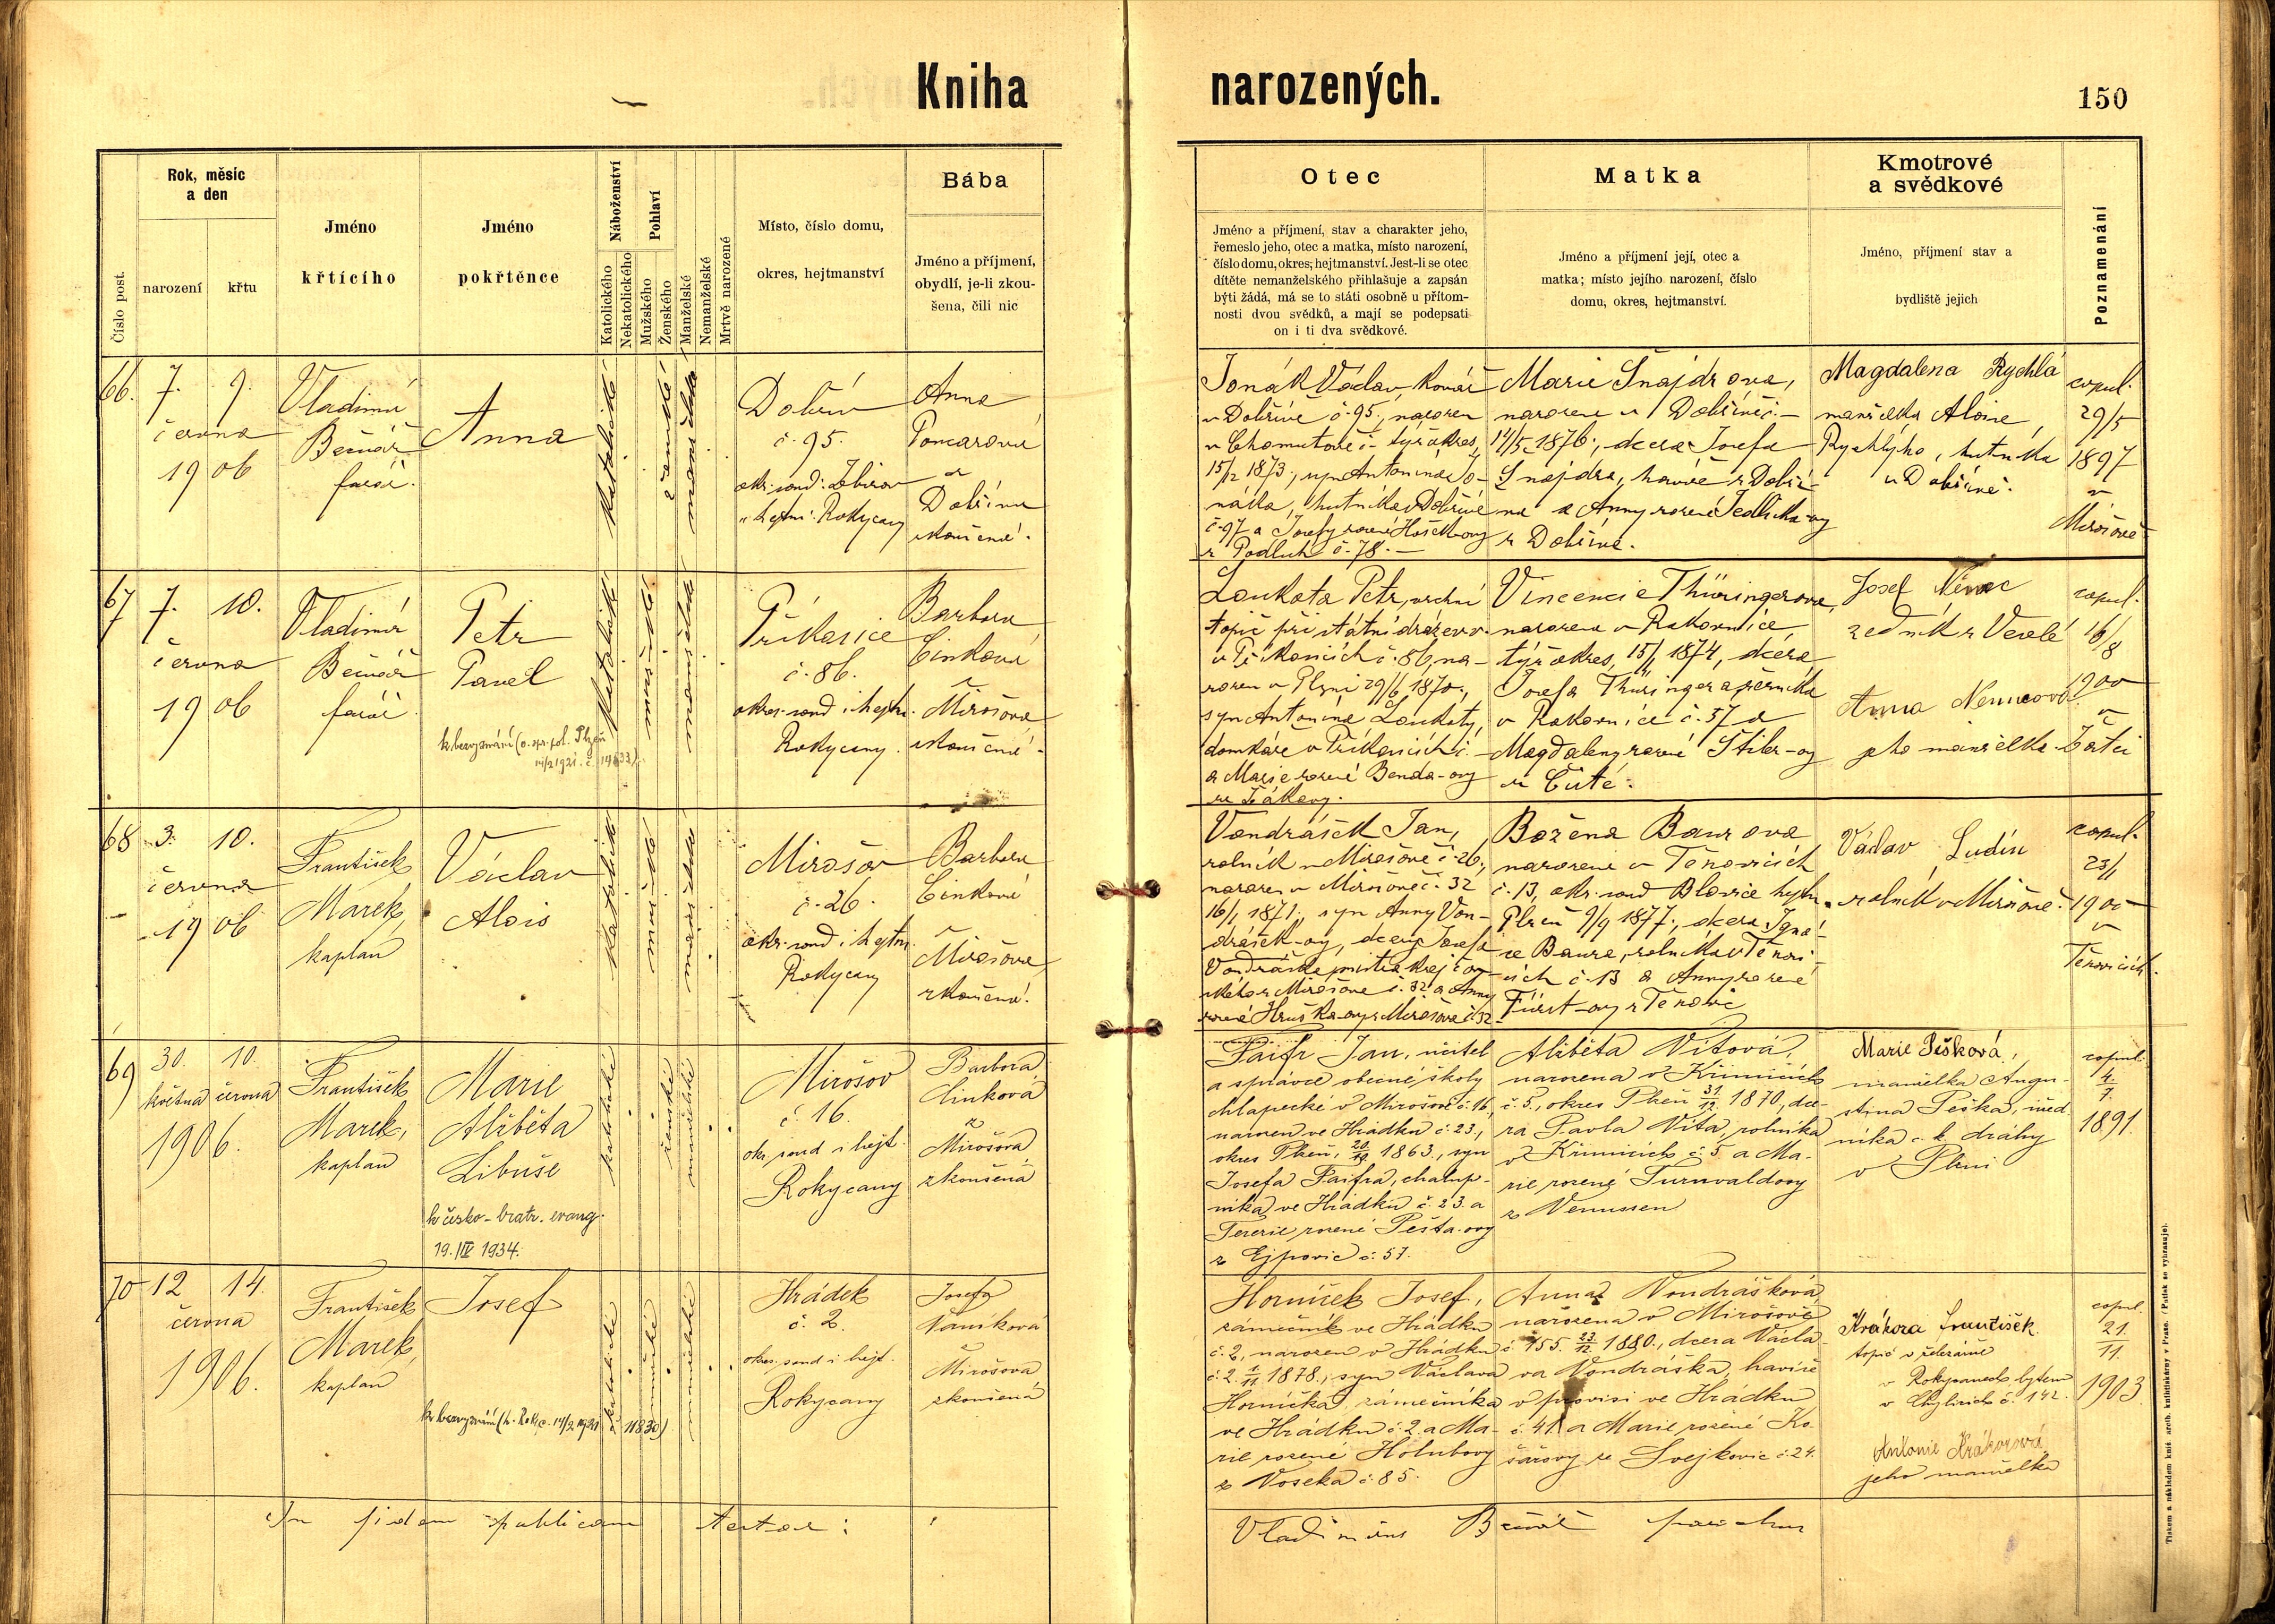 Kniha narozených.
150
Číslo post.
Rok, měsíc
a den
narození
křtu
Jméno
křtícího
Jméno
pokřtěnce
Náboženství
Katolického
Nekatolického
Pohlaví
Mužského
Ženského
Manželské
Nemanželské
Mrtvě narozené
Místo, číslo domu,
okres, hejtmanství
Bába
Jméno a příjmení,
obydlí, je-li zkou-
šena, čili nic
Otec
Jméno a příjmení, stav a charakter jeho,
řemeslo jeho, otec a matka, místo narození,
číslo domu, okres, hejtmanství. Jest-li se otec
dítěte nemanželského přihlašuje a zapsán
býti žádá, má se to státi osobně u přítom-
nosti dvou svědků, a mají se podepsati
on i ti dva svědkové.
Matka
Jméno a příjmení její, otec a
matka; místo jejího narození, číslo
domu, okres, hejtmanství.
Kmotrové
a svědkové
Jméno, příjmení stav a
bydliště jejich
Poznamenání
66.
7. 9.
června
1906
Vladimír
Bečvář
farář.
Anna
katolické
ženské
manželské
Dobřív
č. 95.
okr. soud: Zbirov
" hejtm: Rokycany
Anna
Poncarová
z
Dobříva
zkoušená.
Jonák Václav, kovář
v Dobřívě č. 95., narozen
v Chomutově č - týž okres,
15/2 1873., syn Antonína Jo-
náka, hutníka v Dobřívě
č. 97 a Josefy rozené Hošek-ovy
z Podluh č. 78. -
Marie Šnajdrova,
narozena v Dobřívě č. -
14/5 1876., dcera Josefa
Šnajdra, havíře z Dobří-
va a Anny rozené Jedlička-ovy
z Dobříva.
Magdalena Rychlá
manželka Aloise
Rychlýho, hutníka
v Dobřívě.
copul.
29/5
1897
v
Mirošově
67
7. 10.
června
1906
Vladimír
Bečvář
farář
Petr
Pavel
k bezvyznání (o. spr. pol. Plzeň
katolické
mužské
manželské
Příkosice
č. 86.
okres. soud i hejtm.
Rokycany.
Barbora
Cinková
z
Mirošova
zkoušená.
Loukota Petr, vrchní
topič při státní dráze
v Příkosicích č. 86, na-
rozen v Plzni 29/6 1870.,
syn Antonína Loukoty,
domkáře v Příkosicích č. -
a Marie rozené Benda-ovy
ze Žákavy.
Vincencie Thüringerova,
narozena v Rakovníce,
týž okres, 15/1 1874, dcera
Josefa Thüringera perníkáře
v Rakovníce č. 57 a
Magdaleny rozené Stiler-ovy
z
Josef Němec
zedník z Veselé
Anna Nemcová
jeho manželka.
copul.
16/8
1900
v
Žatci
68
3. 10.
června
1906
František
Marek,
kaplan
Václav
Alois
katolické
mužské
manželské
Mirošov
č. 26.
okr. soud i hejtm.
Rokycany
Barbora
Cinková
z
Mirošova
zkoušená.
Vondrášek Jan,
rolník v Mirošově č. 26.,
narozen v Mirošově č. 32
16/1 1871., syn Anny Von-
drášek-ovy, dcery Josefa
Vondráška mistra krejčov-
ského z Mirošova č. 32 a Anny
rozené Hruška-ovy z Mirošova č. 32
Božena Baurova
narozena v Těnovicích
č. 13, okr. soud Blovice hejtm.
Plzeň 9/9 1877., dcera Igná-
ce Baura, rolníka v Těnovi-
cích č. 13 a Anny rozené
Fürst-ovy z Těnovic
Václav Ludín
rolník v Mirošově.
copul.
23/1
1900
v
Těnovicích.
69
30. 10.
května června
1906.
František
Marek,
kaplan
Marie
Alžběta
Libuše
k česko-bratr. evang.
19./IV 1934.
katolické
ženské
manželské
Mirošov
č. 16.
okr. soud i hejt.
Rokycany
Barbora
Cinková
z
Mirošova,
zkoušená
Paifr Jan, učitel
a správce obecné školy
chlapecké v Mirošově č. 16,
narozen ve Hrádku č. 23.,
okres Plzeň, 20/12 1863., syn
Josefa Paifra, chalup-
níka ve Hrádku č. 23. a
Terezie rozené Pešta-ovy
z Ejpovic č. 57.
Alžběta Vítová,
narozena v Křimicích
č. 5., okres Plzeň 31/12 1870, dce-
ra Pavla Víta, rolníka
v Křimicích č. 5. a Ma-
rie rozené Turnvaldovy
z Vemussen
Marie Pešková,
manželka Augu-
stina Peška, úřed.
níka c. k. dráhy
v Plzni
copul.
4/7.
1891.
70
12 14.
června
1906.
František
Marek,
kaplan
Josef
k bezvyznání (h. Rok. c. 14/2 1921 č. 11830)
katolické
mužské
manželské
Hrádek
č. 2.
okres. soud i hejt.
Rokycany
Josefa
Vaníková
z
Mirošova
zkoušená
Horníček Josef,
zámečník ve Hrádku
č. 2, narozen v Hrádku
č. 2. 1/11. 1878., syn Václava
Horníčka, zámečníka
ve Hrádku č. 2. a Ma-
rie rozené Holubovy
z Voseka č. 85.
Anna Vondrášková
narozena v Mirošově
č. 155. 23/12. 1880., dcera Václa-
va Vondráška, havíře
v provisi ve Hrádku
č. 41 a Marie rozené Ko-
šařovy ze Svejkovic č. 24.
Krákora František.
topič v železárně
v Rokycanech bytem
v č. 142.
Antonie Krákorová
jeho manželka
copul.
21/11.
1903.
In fidem publicam testor:
Vladimirus Bečvář parochus
Tiskem a nákladem kníž. arcib. knihtiskárny v Praze. (Patisk se vyhrazuje).